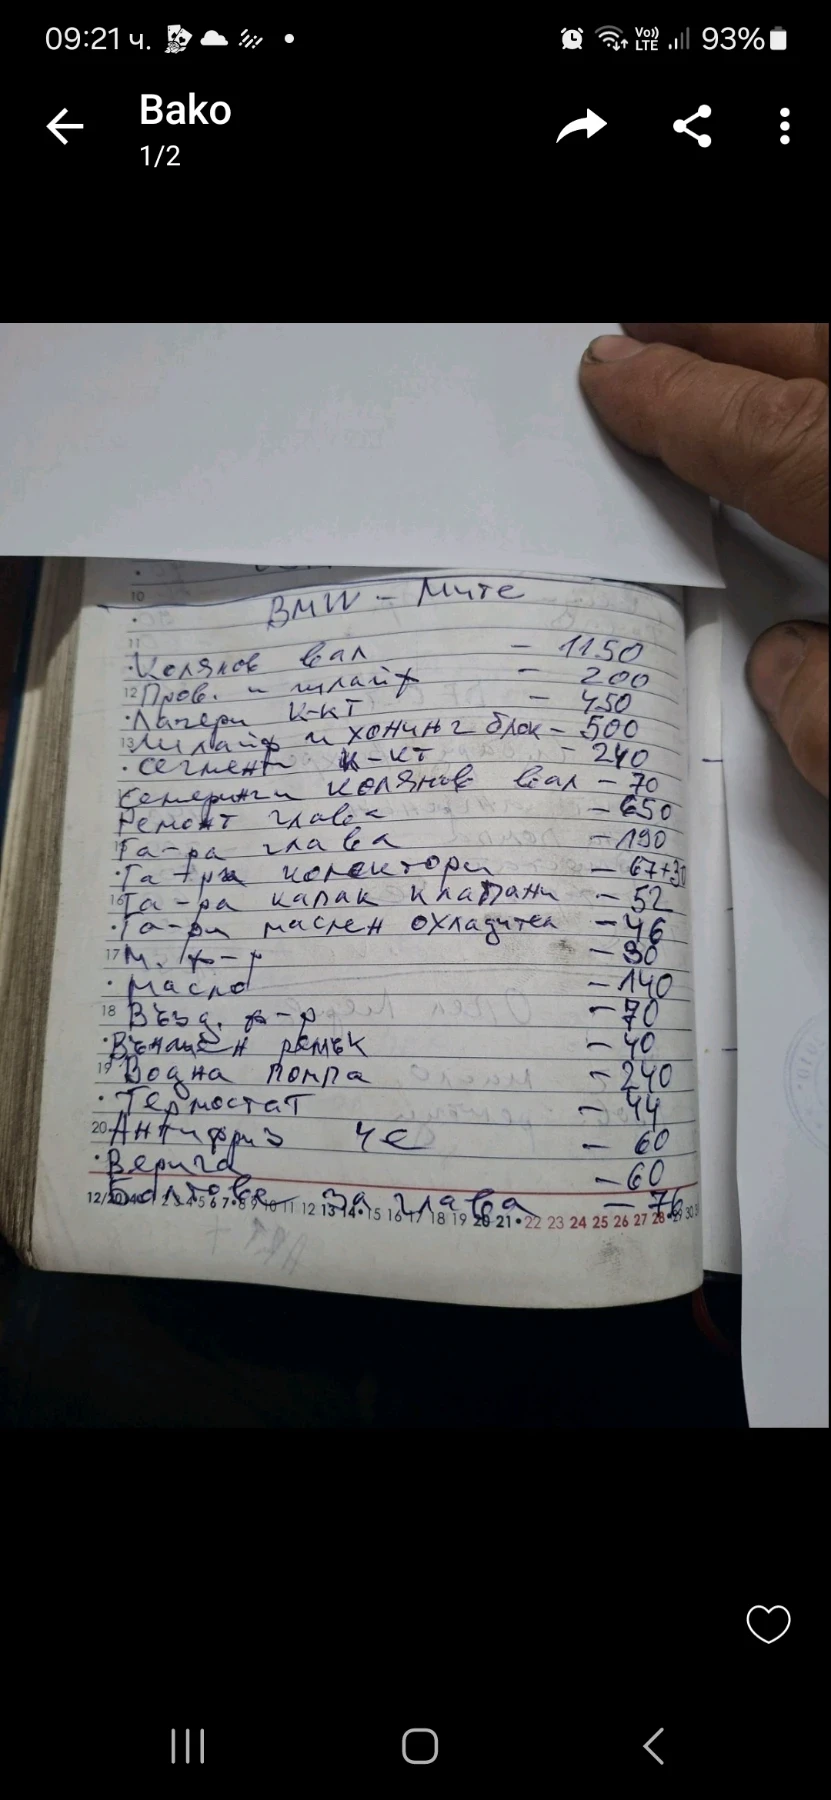 09:21 ч.
Vo)) LTE 93%
Bako
1/2
10
BMW - Мите
11
Колянов вал - 1150
12 Пров. и шлайф - 200
Лагери к-кт - 450
13 Шлайф и хонинг блок - 500
сегменти к-кт - 240
семеринги колянов вал - 70
Ремонт глава - 650
Га-ра глава - 190
Га-ри колектори - 67+30
16 Га-ра капак клапани - 52
Га-ри маслен охладител - 46
17 М. ф-р - 30
Масло - 140
18 Възд. ф-р - 70
Външен ремък - 40
19 Водна помпа - 240
Термостат - 44
20 Антифриз 4е - 60
Верига - 60
Болтове за глава - 76
8 9 10 11 12 13 14 15 16 17 18 19 20 21 22 23 24 25 26 27 28 29 30